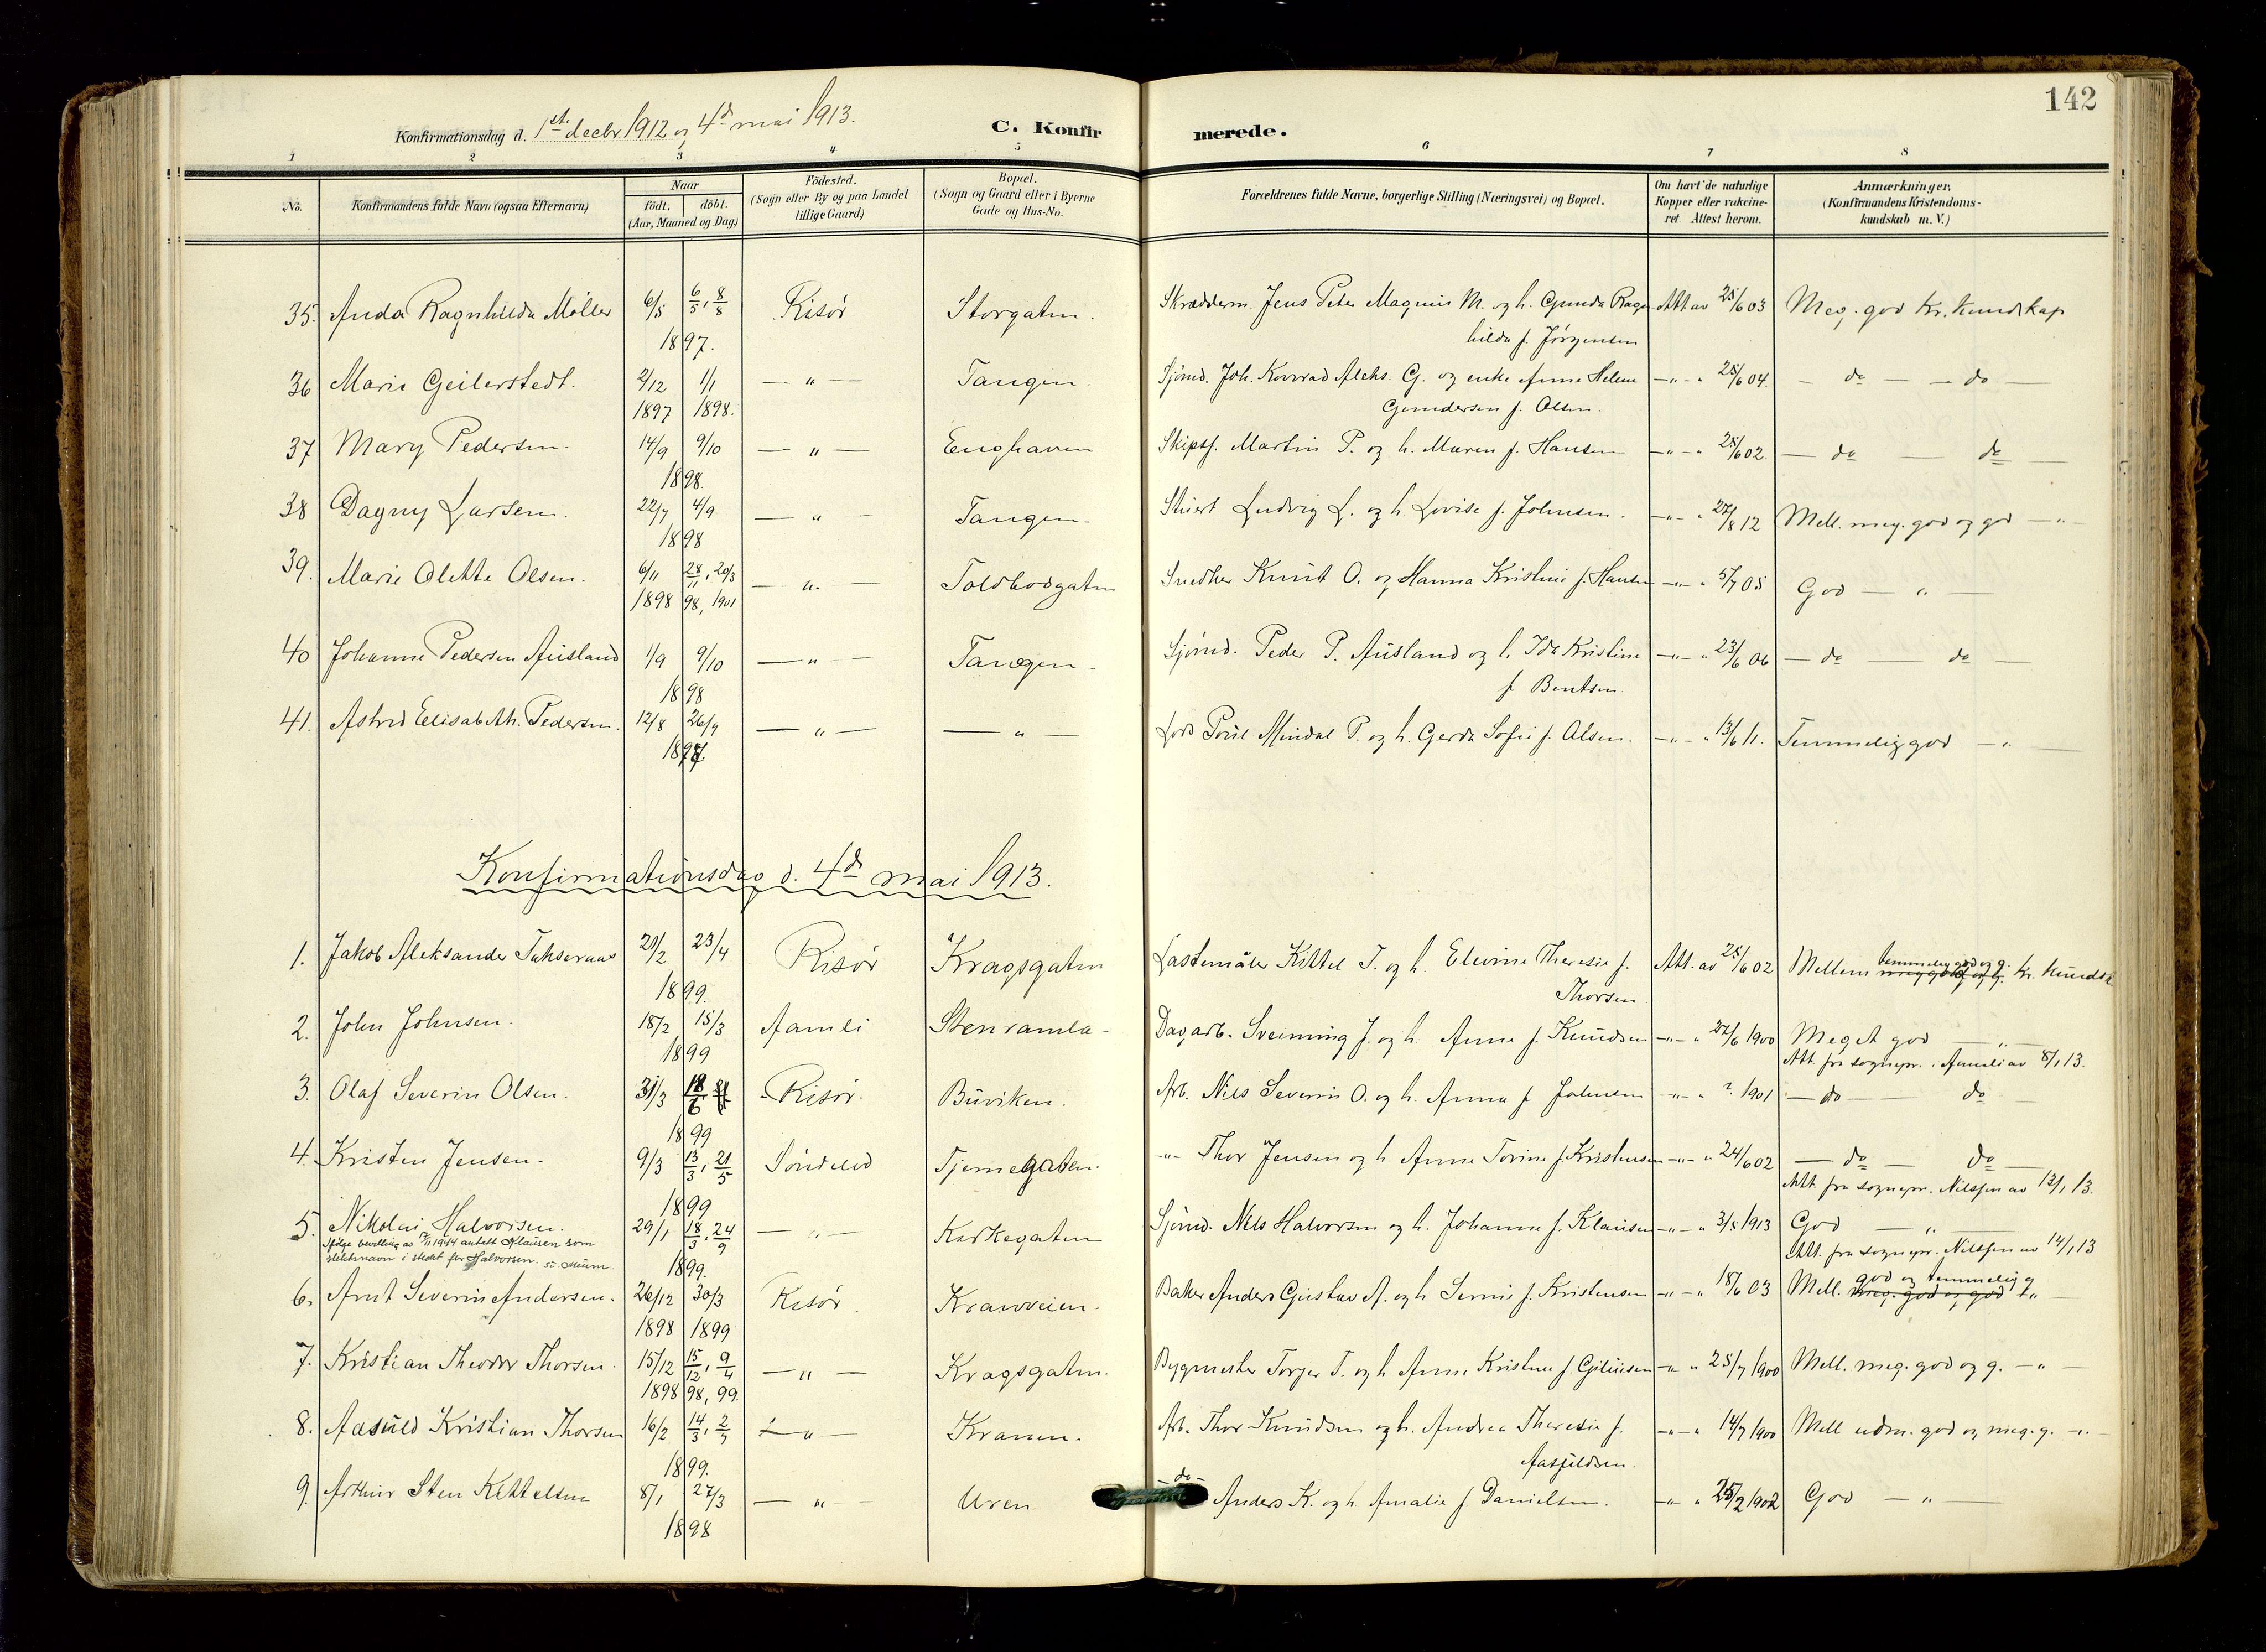 142
Konfirmationsdag d. 1ste decbr. 1912 og 4de mai 1913. C. Konfirmerede.
1 2 3 4 5 6 7 8
No. Konfirmandens fulde Navn (ogsaa Efternavn) Naar födt. döbt. (Aar, Maaned og Dag) Födested. (Sogn eller By og paa Landet tillige Gaard) Bopæl. (Sogn og Gaard eller i Byerne Gade og Hus-No. Forældrenes fulde Navne, borgerlige Stilling (Næringsvei) og Bopæl. Om havt de naturlige Kopper eller vakcineret Attest herom. Anmærkninger. (Konfirmandens Kristendomskundskab m. V.)
35. Anda Ragnhilda Möller 6/5 6/5, 8/8 Risör Storgaten. Skrædderm. Jens Peter Magnus M. og h. Gunda Ragn Att av 25/6 03 Meg. god kr. kundskap
1897. hilda f. Jörgensen
36 Marie Geilerstedt. 2/12 1/1 — " — Tangen. Sjömd. Joh. Konrad Aleks. G. og enke Anne Helene — " — " 25/6 04. — do — — do —
1897 1898. Gundersen f. Olsen.
37 Mary Pedersen. 14/9 9/10 — " — Enghaven Skipsf. Martin P. og h. Maren f. Hansen — " — " 25/6 02. — do — do —
1898.
38 Dagny Larsen. 22/7 4/9 — " — Tangen. Stuert Ludvig L. og h. Lovise f. Johnsen. — " — " 27/8 12 Mell. meg. god og god — " —
1898
39. Marie Olette Olsen. 6/11 28/11, 20/3 — " — Toldbodgaten Snedker Knut O. og Hanna Kristine f. Hansen — " — " 5/7 05 God — " —
1898 98, 1901
40 Johanne Pedersen Ausland 1/9 9/10 — " — Tangen. Sjömd. Peder P. Ausland og h. Ida Kristine — " — " 23/6 06 — do — do —
1898 f. Bentsen.
41. Astrid Elisabeth. Pedersen. 12/8 26/9 — " — — " — Lods Poul Mindal P. og h. Gerda Sofie f. Olsen. — " — " 13/6 11. Temmelig god — " —
1897
Konfirmationsdag d. 4de mai 1913.
1. Jakob Aleksander 21/2 23/4 Risör Kragsgaten Lastemåler Kittel T. og h. Elevine Theresie f. Att. av 25/6 02 Mellem temmelig god og g. kr. kundsk
1899. Thorsen
2. John Johnsen. 18/2 15/3 Aamli Stenramla. Dagarb. Sveinung J. og h. Anne f. Knudsen — " — " 27/6 1900 Meget god — " —
1899 Att. fra sognepr. i Aamli av 8/1 13.
3. Olaf Severin Olsen. 31/3 18/6 Risör. Buviken. Arb. Nils Severin O. og h. Anna f. Johnsen — " — " ? 1901 — do — do —
1899
4. Kristen Jensen. 9/3 13/3, 21/5 Söndeled Tjennegaten. — " — Thor Jensen og h. Anne Torine f. Kristensen — " — " 24/6 02 — do — do —
1899 Att. fra sognepr. Nilssen av 13/1 13.
5. Nikolai Halvorsen. 29/1 18/3, 24/9 — " — Kirkegaten Sjömd. Nils Halvorsen og h. Johanne f. Klausen — " — " 3/5 1913 God — " —
Ifölge bevilling av 17/11 1944 antatt Klausen som
slektsnavn i stedet for Halvorsen. 1899. Att. fra sognepr. Nilssen av 14/1 13
6. Arnt Severin Andersen. 26/12 30/3 Risör. Kranveien. Baker Anders Gustav A. og h. Serine f. Kristensen — " — " 18/6 03 Mell. god og temmelig g. — " —
1898 1899
7. Kristian Theodor Thorsen. 15/12 15/12, 9/4 — " — Kragsgaten. Bygmester Torger T. og h. Anne Kristine f. — " — " 25/7 1900 Mell. meg. god og g. — " —
1898 98, 99.
8. Aasuld Kristian Thorsen 16/2 14/3, 2/7 — " — Kranen. Arb. Thor Knudsen og h. Andrea Theresie f. — " — " 14/7 1900 Mell udm. god og meg. g. — " —
1899. Aasuldsen.
9. Arthur Sten Kittelsen 8/1 27/3 — " — Uren — do — Anders K. og h. Amalie f. Danielsen. — " — " 25/2 1902 God — " —
1898